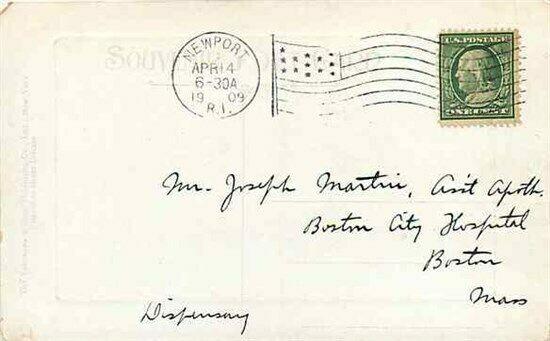 NEWPORT
APR 14
6-30A
1909
R.I.
U.S. POSTAGE
SOUVENIR
Mr. Joseph Martin, Ass't Apoth.
Boston City Hospital
Boston
Mass
Dispensary